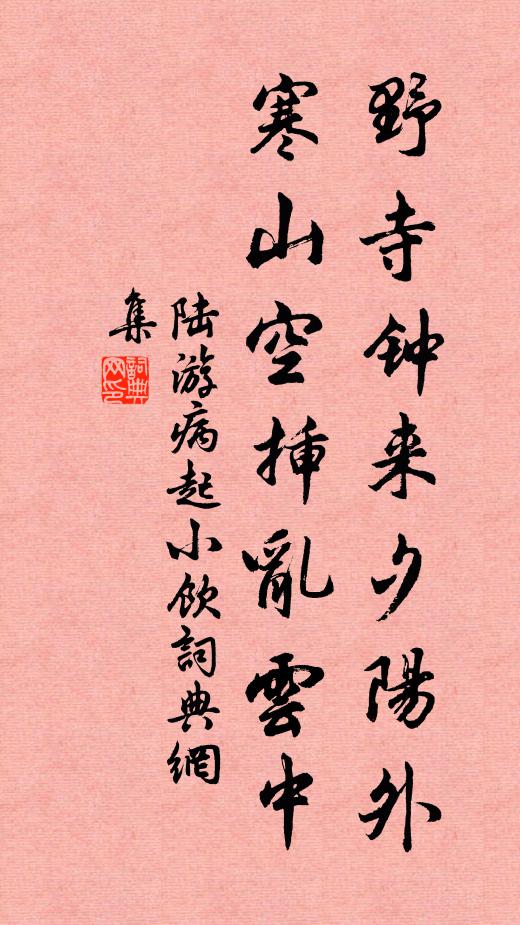 野寺钟来夕陽外
寒山空挿亂雲中
陆游病起小飲詞典網
集
詞典网印